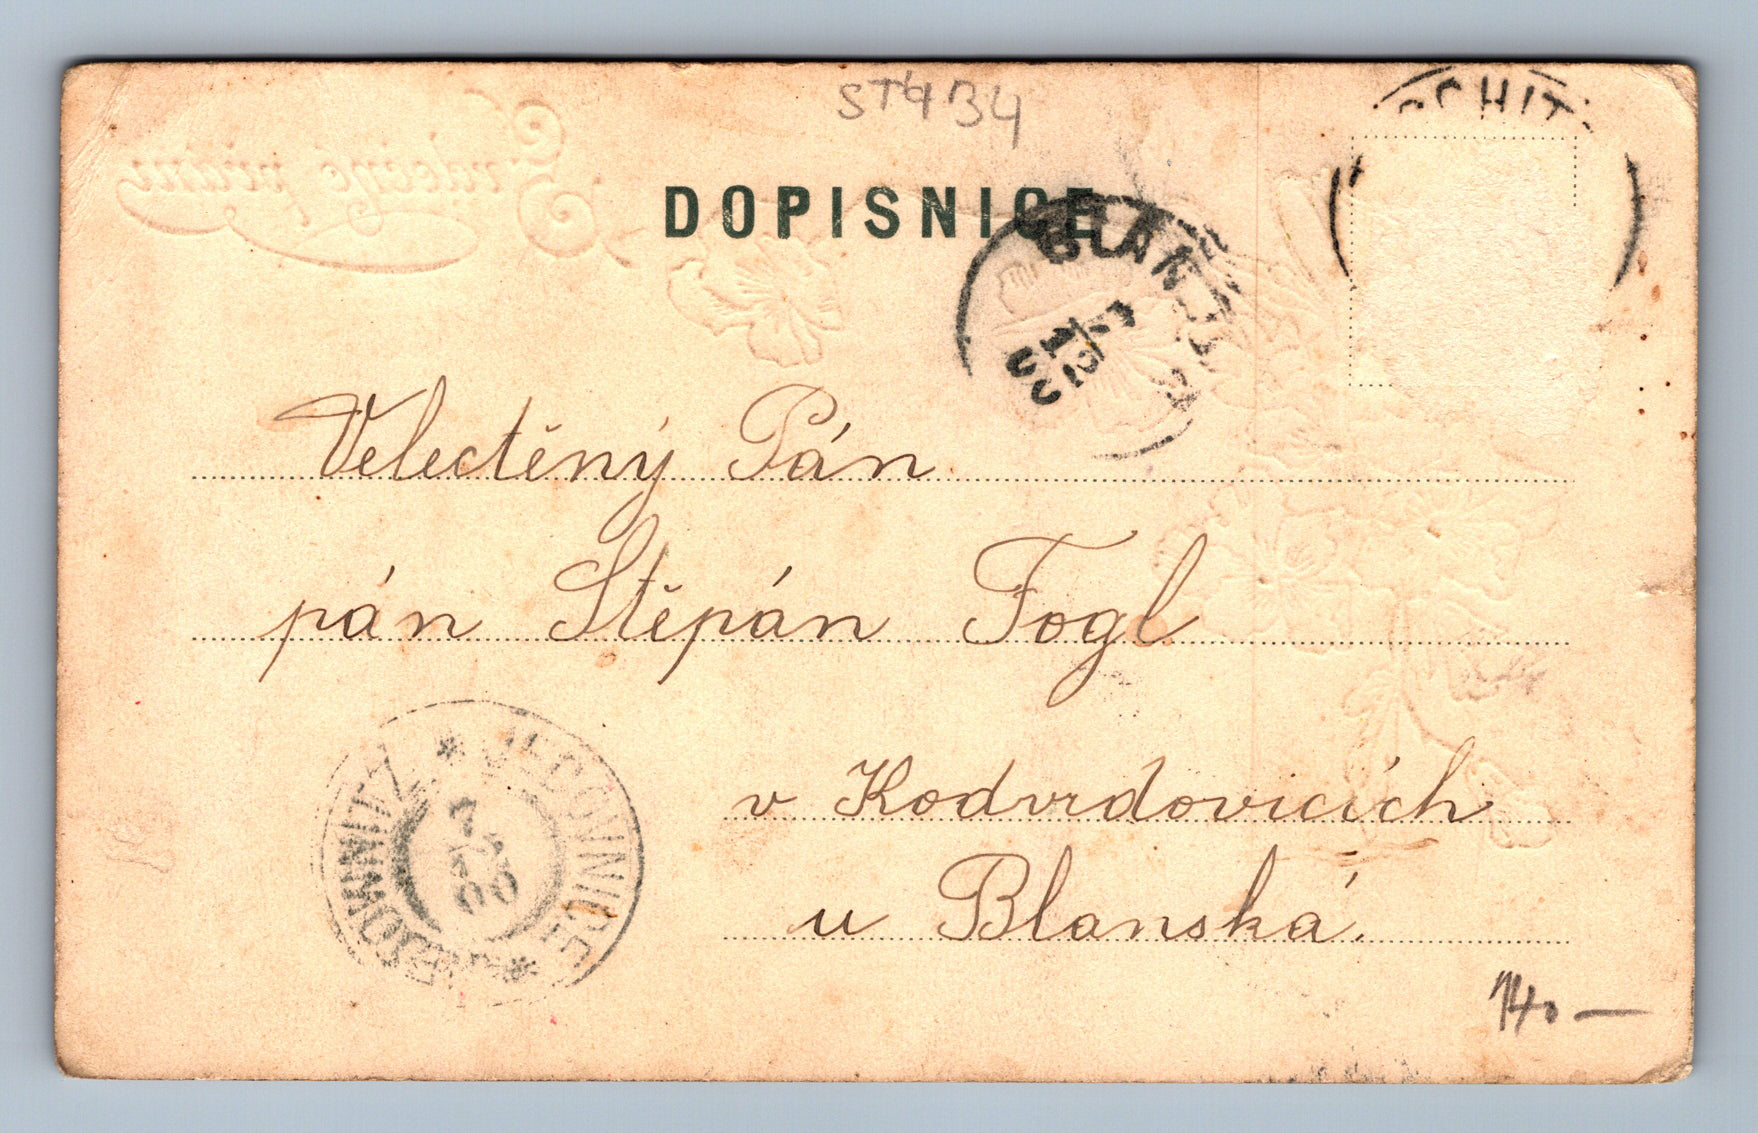 ST934
DOPISNICE
BLANSKO
Velectěný Pán
pán Štěpán Fogl
v Kodvrdovicích
u Blanska.
* JEDOVNICE * JEDOWNITZ
7
12
00
140 —